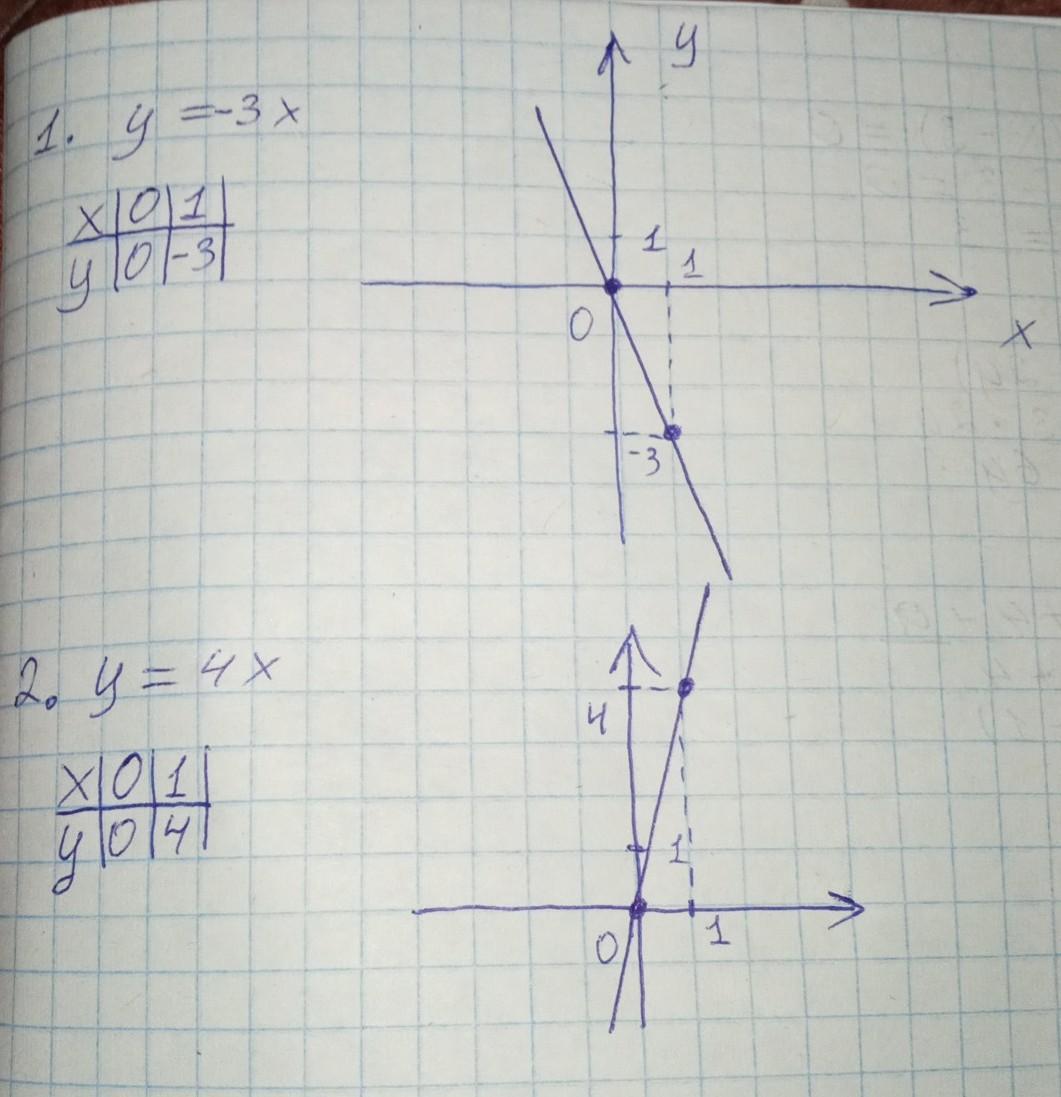 1. y = -3x
x 0 1
y 0 -3
y
1
1
0
x
-3
2. y = 4x
x 0 1
y 0 4
4
1
0
1